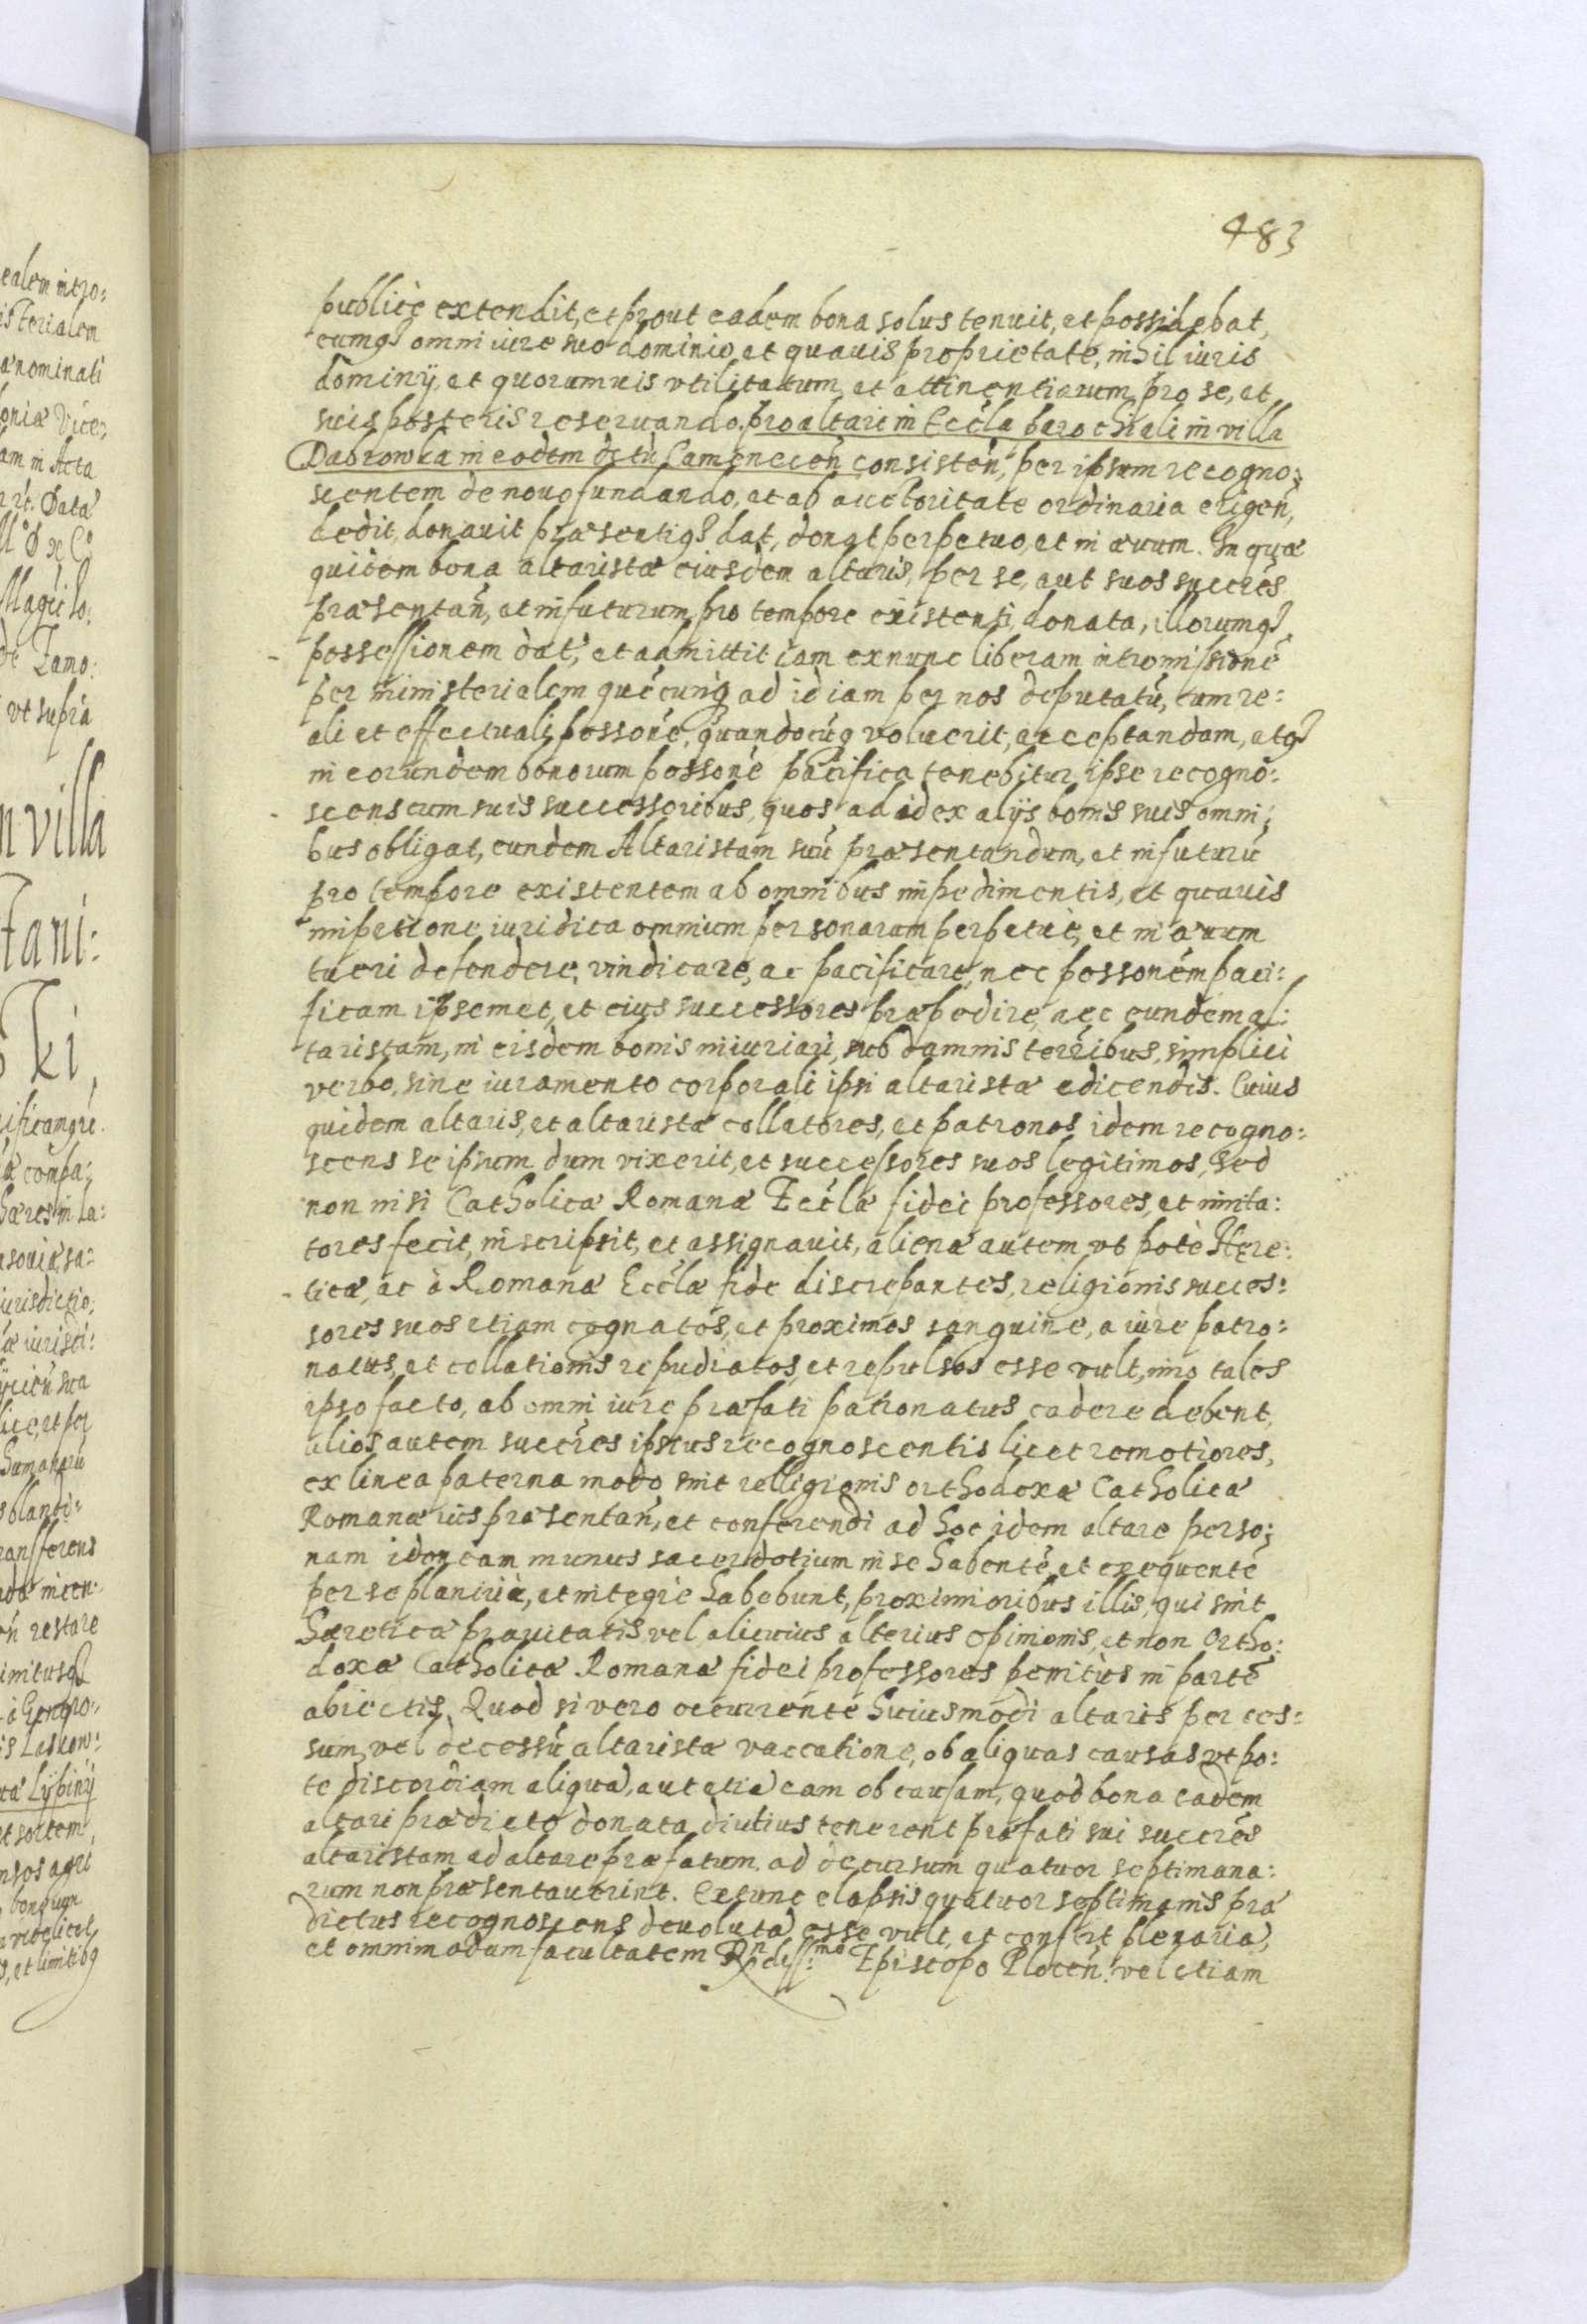 483
publicè extendit, et prout eadem bona solus tenuit, et possidebat,
cumq3 omni iure suo dominio, et quavis proprietate, nihil iuris
dominÿ, et quorumuis vtilitatum, et attinentiarum pro se, et
suis posteris reseruando. pro altari in Eccla parochiali in villa
Dabrowka in eodem dstu Camenecen consisten, per ipsum recogno:
scentem de nouo fundando, et ab auctoritate ordinaria erigen,
dedit, donauit præsentiq3 dat, donat perpetuo, et in æuum. In quæ
quidem bona altaristæ eiusdem altaris, per se, aut suos succrés
præsentan, et in futurum pro tempore existenti, donata, illorumq3
possessionem dat, et admittit iam ex nunc liberam intromissioné
per ministerialem quécunq ad id iam per nos deputatú, cum re:
ali et effectuali possoné, quandocúq voluerit, acceptandam, atq3
in eorundem bonorum possoné pacifica tenebitur ipse recogno:
scens cum suis successoribus, quos ad id ex alÿs bonis suis omni:
bus obligat, eundem Altaristam suú præsentandum, et in futurú
pro tempore existentem ab omnibus impedimentis, et quauis
impetione iuridica omnium personarum perpetuè, et in æuum
tueri defendere, vindicare, ac pacificare, nec possoném paci:
ficam ipsemet, et eius successores præpedire, nec eundem al:
taristam, in eisdem bonis iniuriari, sub damnis terribus, simplici
verbo, sine iuramento corporali ipsi altaristæ edicendis. Cuius
quidem altaris, et altaristæ collatores, et patronos idem recogno:
scens se ipsum dum vixerit, et successores suos legitimos, sed
non nisi Catholicæ Romanæ Ecclæ fidei professores, et imita:
tores fecit, inscripsit, et assignauit, alienæ autem vt potè Hære:
ticæ, ac à Romanæ Ecclæ fide discrepantes, religionis succes:
sores suos etiam cognatos, et proximos sanguine, a iure patro:
natus, et collationis repudiatos, et repulsos esse vult, imo tales
ipso facto, ab omni iure præfati patronatus cadere debent,
alios autem succres ipsius recognoscentis licet remotiores,
ex linea paterna modo sint relligionis orthodoxæ Catholicæ
Romanæ ius præsentan, et conferendi ad hoc idem altare perso:
nam idoneam munus sacerdotium in se habenté, et exequenté
per se plenariè, et integrè habebunt, proximioribus illis, qui sint
hæreticæ prauitatis, vel alicuius alterius opinionis, et non Ortho:
doxæ Catholicæ Romanæ fidei professores penitùs in parté
abiectis. Quod si vero occurrente huiusmodi altaris per ces:
sum, vel decessú altaristæ vaccatione, ob aliquas causas vt po:
te discordiam aliquá, aut etiá eam ob causam, quod bona eadem
altari prædicto donata diutius tenerent præfati sui succrés
altaristam ad altare præfatum ad decursum quatuor septimana:
rum non præsentauerint. Extunc elapsis quatuor septimanis præ
dictus recognoscens deuolutá esse vult, et confert plenariá,
et omnimodam facultatem Rndiss:mo Episcopo Plocen. vel etiam